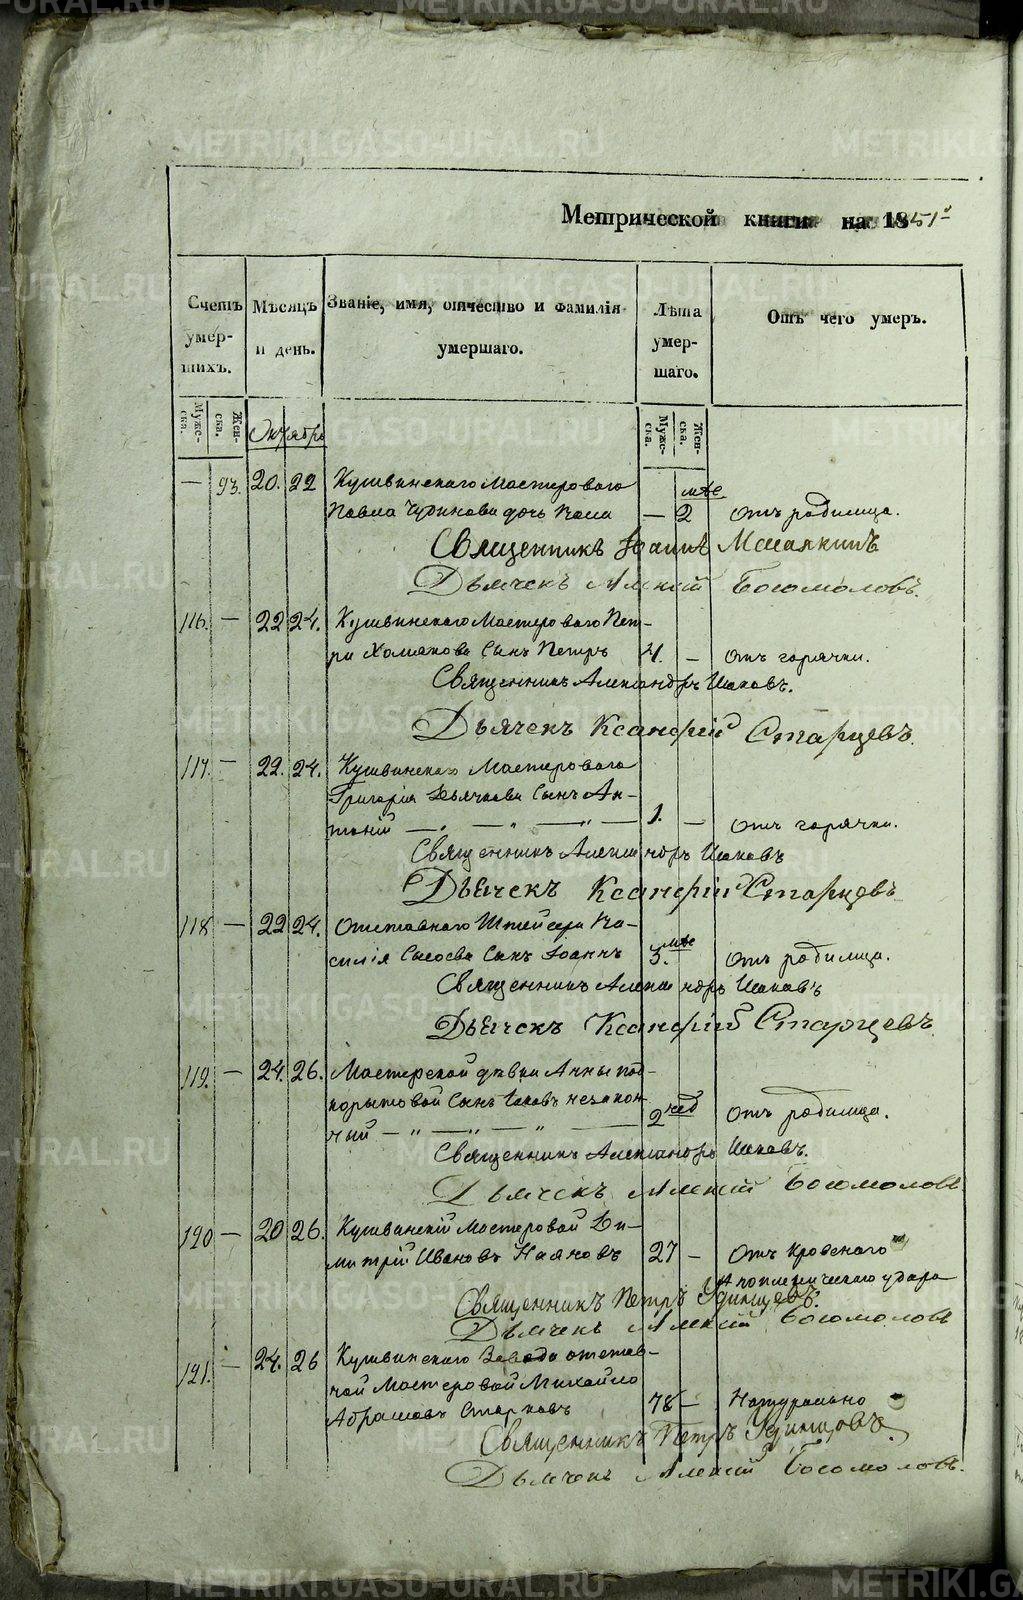 Метрической книги на 1851й
Счетъ умершихъ.
Мѣсяцъ и день.
Званіе, имя, отчество и фамилія умершаго.
Лѣта умершаго.
Отъ чего умеръ.
Мужеска. Женска. Октябрь Мужеска. Женска.
— 93. 20. 22 Кушвинскаго Мастероваго мѣс.
Павла Чудинова дочь — 2 отъ родимца.
Священникъ Іоаннъ
Дьячекъ Алексій Богомоловъ.
116. — 22 24. Кушвинскаго Мастероваго Пет-
ра Хомякова Сынъ Петръ 4. — отъ горячки.
Священникъ Александръ Ишковъ.
Дьячекъ Ксанфій Старцевъ.
117. — 22. 24. Кушвинскаго Мастероваго
Григорія Дьячкова Сынъ Ан-
тоній — „ — „ — „ — 1. — отъ горячки.
Священникъ Александръ Ишковъ
Дьячекъ Ксанфій Старцевъ
118 — 22 24. Отставнаго Штейгера Ва-
силія Сысоева Сынъ Іоаннъ 3. мѣс отъ родимца.
Священникъ Александръ Ишковъ
Дьячекъ Ксанфій Старцевъ
119. — 24. 26. Мастерской дѣвки Анны Под-
корытовой Сынъ Іаковъ незакон-
ный — „ — „ — „ — 2 нед отъ родимца.
Священникъ Александръ Ишковъ.
Дьячекъ Алексій Богомоловъ
120 — 20 26. Кушвинскій Мастеровой Ди-
митрій Ивановъ 27 — Отъ Кровенаго
Апоплексическаго удара
Священникъ Петръ Удинцевъ.
Дьячекъ Алексій Богомоловъ
121. — 24. 26 Кушвинскаго Завода отстав-
ной Мастеровой Михайло
Абрамовъ Старковъ 78 — Натурально
Священникъ Петръ Удинцовъ.
Дьячекъ Алексій Богомоловъ.
METRIKI.GASO-URAL.RU